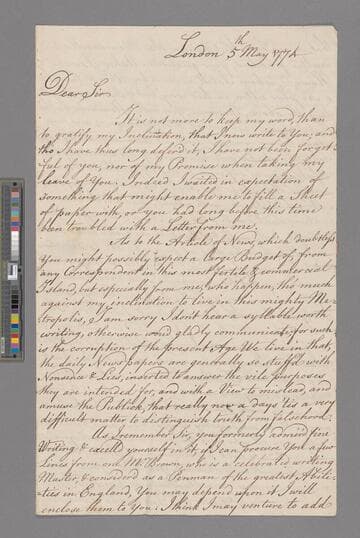 London 5th May 1774
Dear Sir
It is not more to keep my word, than
to gratify my Inclination, that I now write to You; and
tho I have thus long defer'd it, I have not been forget-
ful of you, nor of my Promise when taking my
leave of You; Indeed I waited in expectation of
something that might enable me to fill a Sheet
of paper with, or you had long before this time
been troubled with a Letter from me.
As to the Article of News, which doubtless
You might possibly expect a large Budget of, from
any Correspondent in this most fertile & commercial
Island, but especially from me, who happen, tho much
against my inclination to live in this mighty Me-
tropolis, I am sorry I don't hear a syllable worth
writing, otherwise wou'd gladly communicate; for such
is the corruption of the present Age We live in that,
the daily News papers are generally so stuffed with
Nonsence & Lies, inserted to answer the vile purposes
they are intended for, and with a View to mislead, and
amuse the Publick, that really now a days 'tis a very
difficult matter to distinguish truth from falsehood.
As I remember Sir, you formerly admir'd fine
Writing & excell'd yourself in it, if I can procure You a few
Lines from one Mr Brown, who is a celebrated writing
Master, & considered as a Penman of the greatest Abili-
-ties in England, You may depend upon it I will
enclose them to You: I think I may venture to add